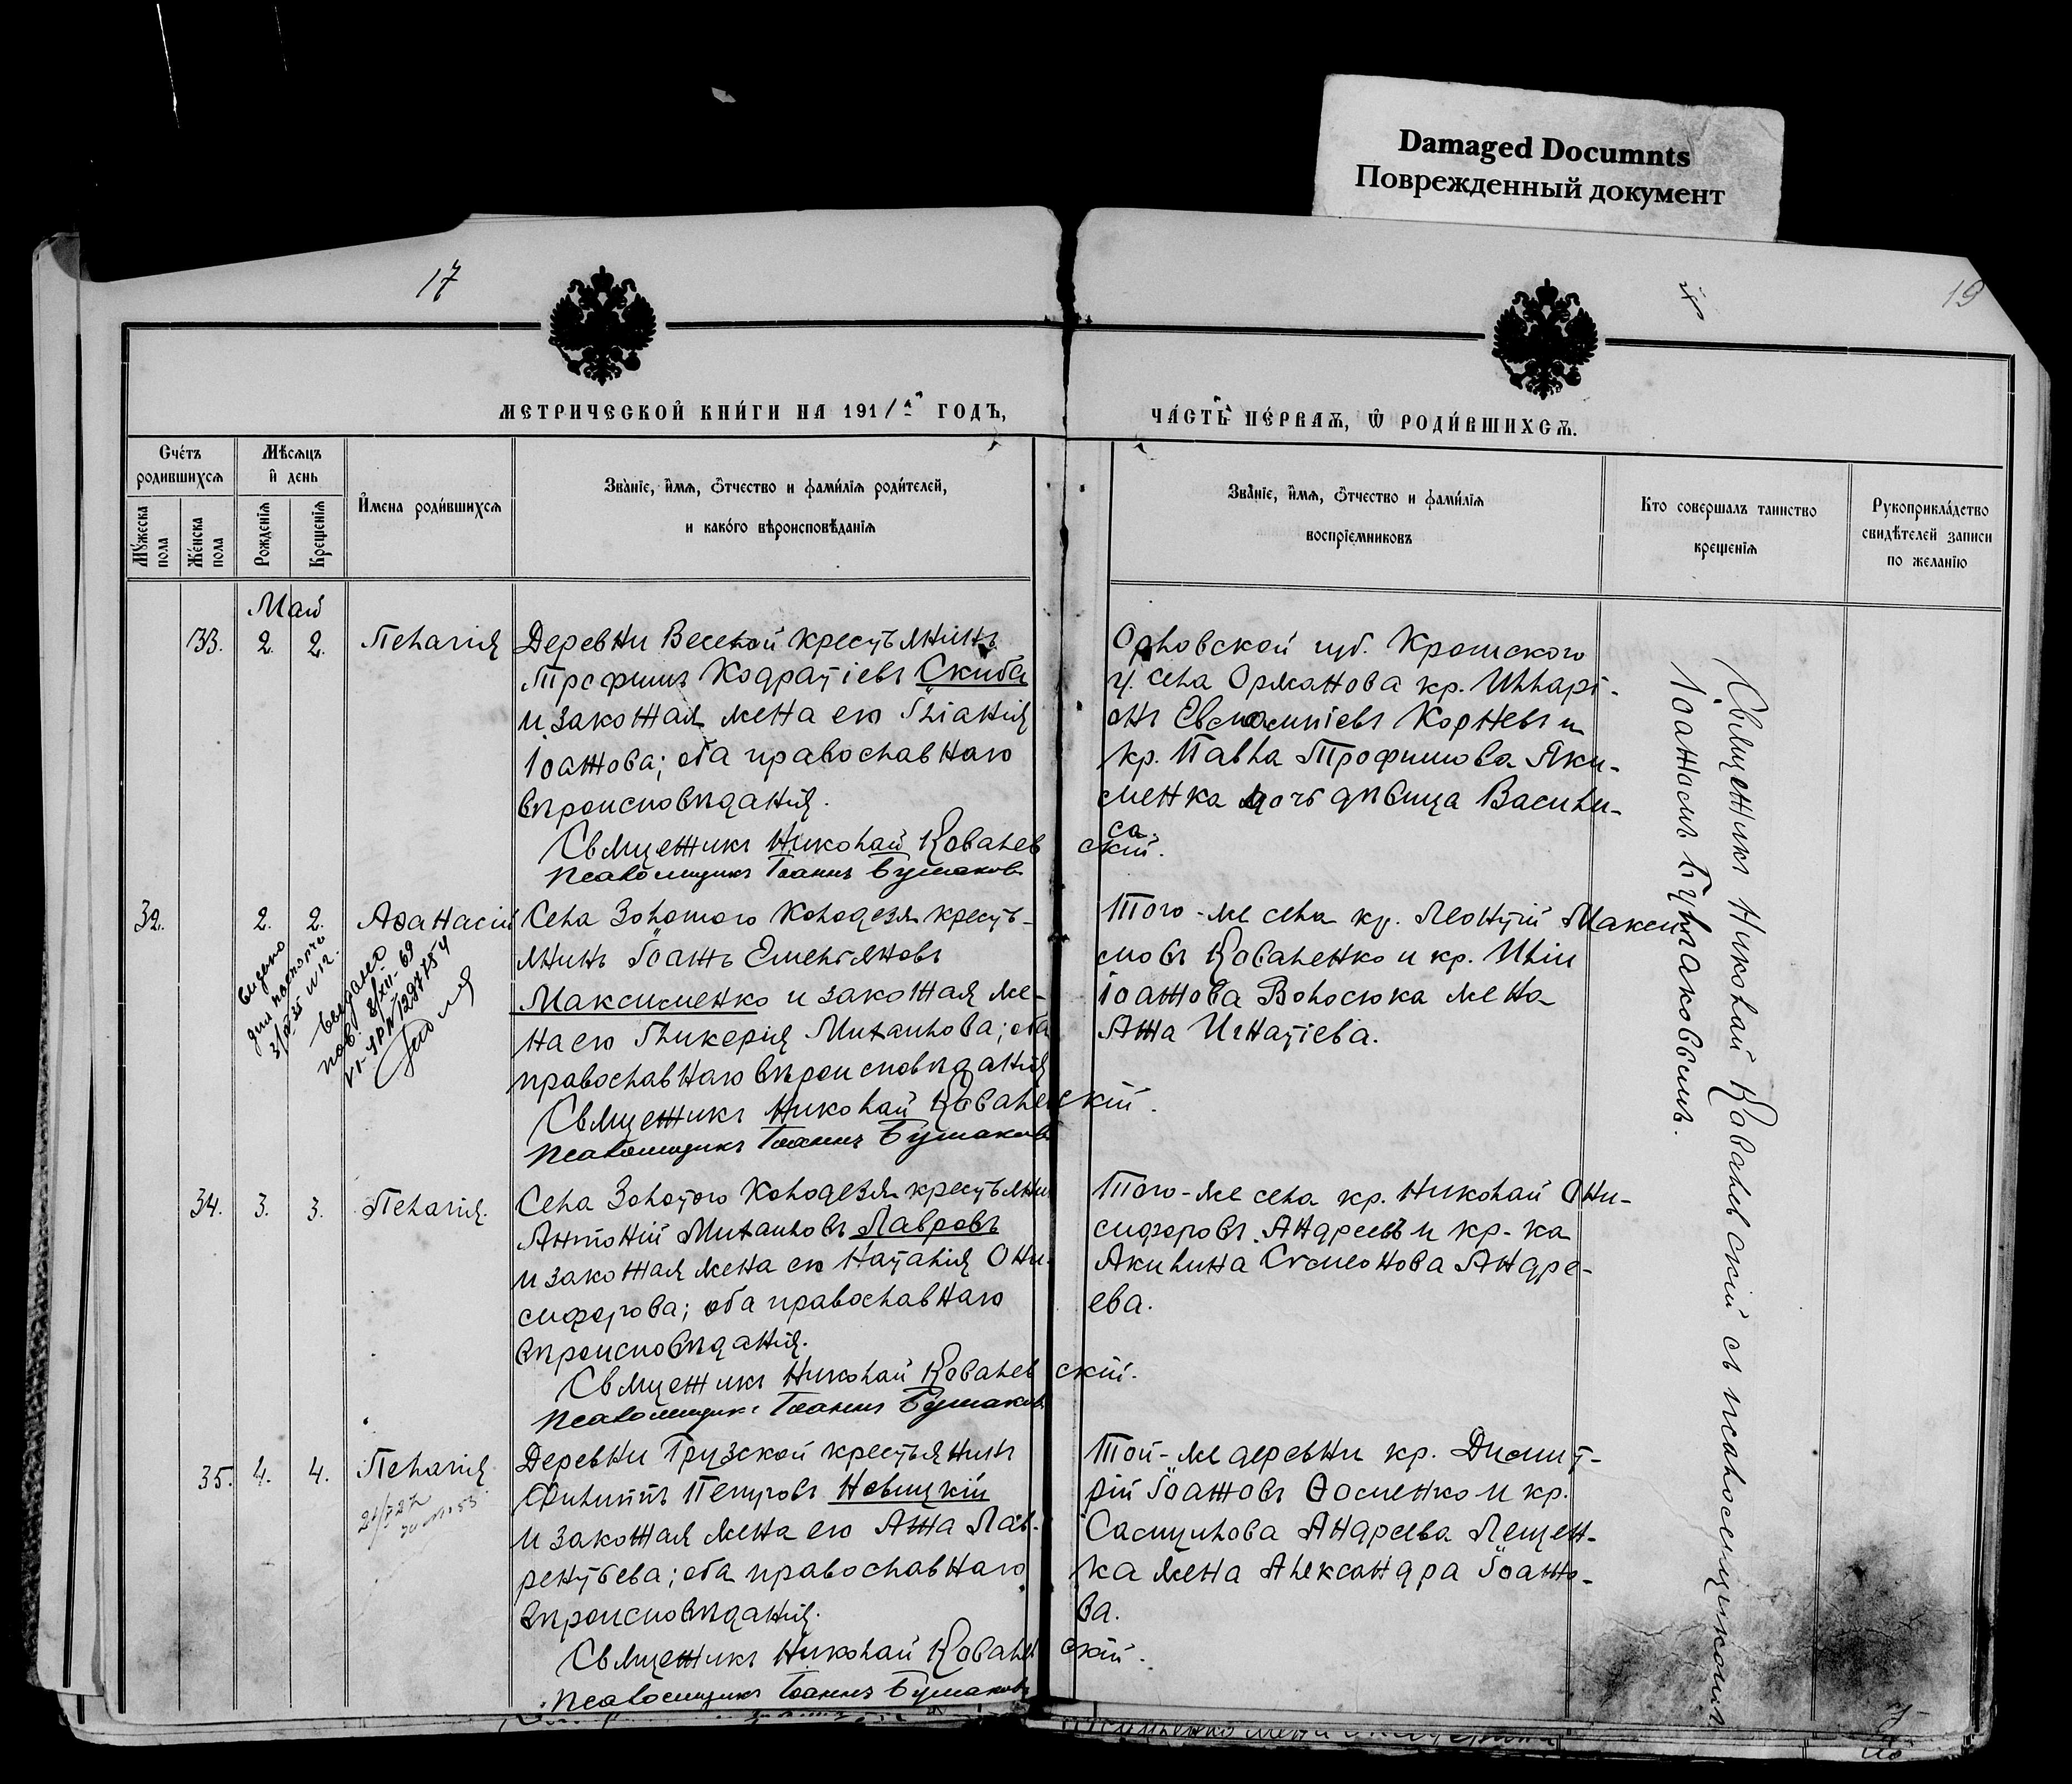 Damaged Documnts
Поврежденный документ
17
19
МЕТРИЧЕСКОЙ КНИ́ГИ НА 1911 ГОДЪ,
ЧА́СТЬ ПЕ́РВАѦ, Ѿ РОДИ́ВШИХСѦ.
Сче́тъ родившихсѧ
Мѣ́сѧцъ и҆ день
Му́жеска пола
Же́нска пола
Рожденїѧ
Крещенїѧ
И҆мена роди́вшихсѧ
Зва́нїе, и҆́мѧ, ѻ҆́тчество и фами́лїѧ роди́телей,
и како́го вѣроисповѣ́данїѧ
Зва́нїе, и҆́мѧ, ѻ҆́тчество и фами́лїѧ
воспрїе́мниковъ
Кто совершалъ таинство
крещенїѧ
Рукоприкла́дство
свидѣ́телей записи
по жела́нїю
Май
33. 2. 2. Пелагія
Деревни Веселой крестьянинъ
Трофимъ Кодратіевъ Скиба
и законная жена его
Іоаннова; оба православнаго
вѣроисповѣданія.
Священникъ Николай Ковалевскій.
Псаломщикъ Іоаннъ Булмаковъ
Орловской губ. Кромского
у. села Орманова кр. Илларі-
онъ Корневъ и
кр. Павла Трофимова Яки-
менка дочь дѣвица Васили-
са.
32. 2. 2. Аѳанасій
выдано
Села Золотого Колодезя кресть-
янинъ Іоаннъ Емельяновъ
Максименко и законная же-
на его Гликерія Михаилова; оба
православнаго вѣроисповѣданія
Священникъ Николай Ковалевскій.
Псаломщикъ Іоаннъ Булмаковъ
Того-же села кр. Леонтій Макси-
мовъ Коваленко и кр. Иліи
Іоаннова Волосюка жена
Анна Игнатіева.
34. 3. 3. Пелагія.
Села Золотого Колодезя крестьянинъ
Антоній Михаиловъ Лавровъ
и законная жена его Наталія Они-
сифорова; оба православнаго
вѣроисповѣданія.
Священникъ Николай Ковалевскій.
Псаломщикъ Іоаннъ Булмаковъ
Того-же села кр. Николай Они-
сифоровъ Андреевъ и кр-ка
Акилина Симеонова Андре-
ева.
35. 4. 4. Пелагія
Деревни Грузской крестьянинъ
Филиппъ Петровъ Новицкій
и законная жена его Анна Лав-
рентьева; оба православнаго
вѣроисповѣданія.
Священникъ Николай Ковалевскій.
Псаломщикъ Іоаннъ Булмаковъ
Той-же деревни кр. Димит-
рій Іоанновъ Ѳоменко и кр.
Самуилова Андреева Лещен-
ка жена Александра Іоанно-
ва.
Священникъ Николай Ковалевскій съ псаломщикомъ
Іоанномъ Булмаковымъ.